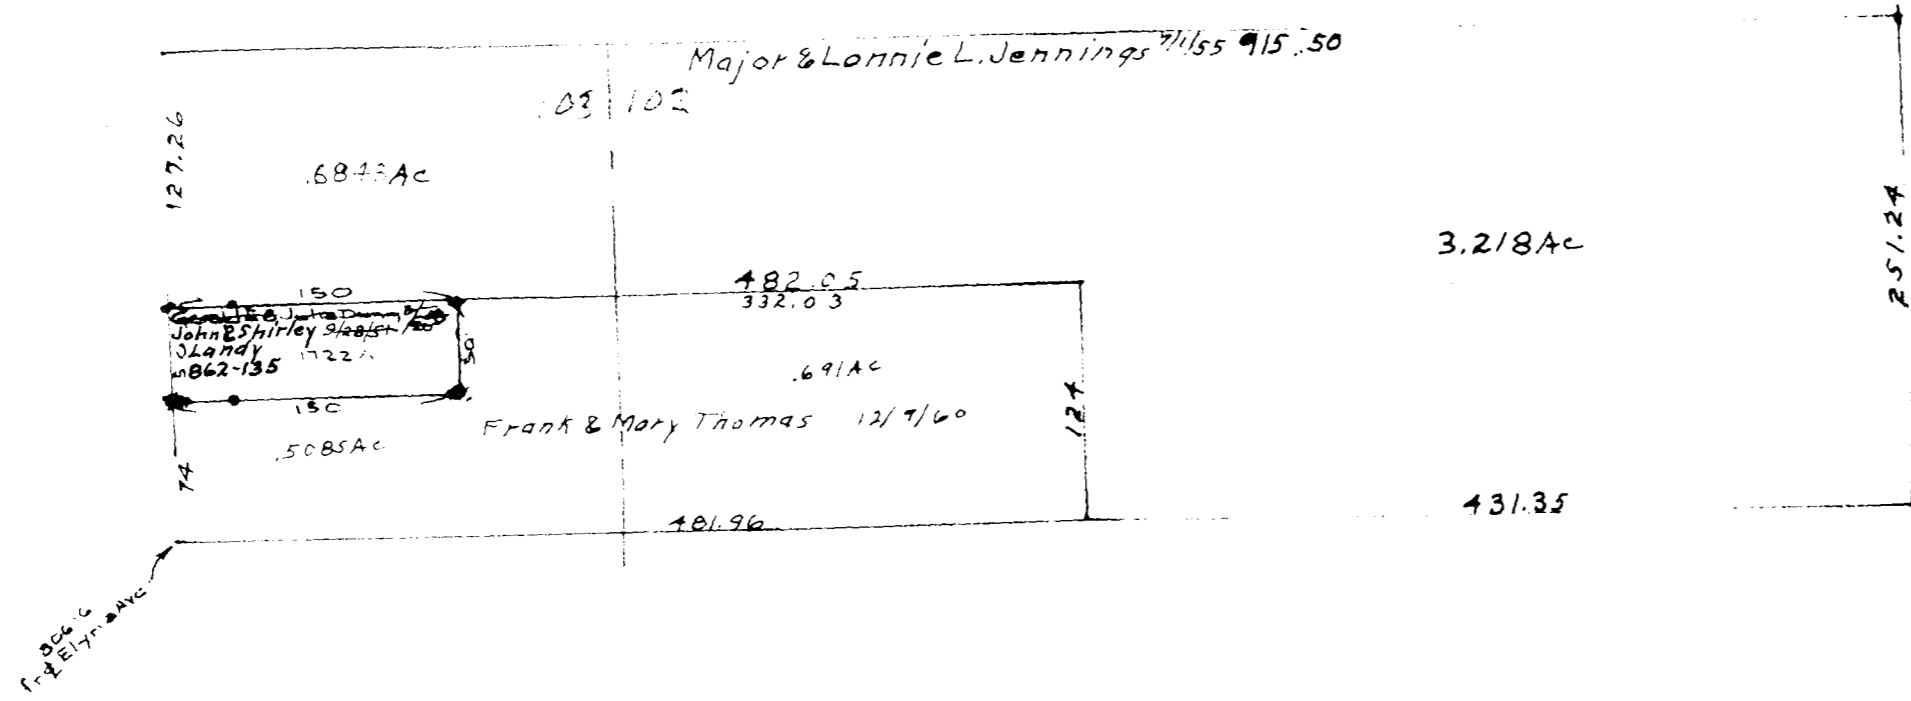 Major & Lonnie L. Jennings 7/1/55 915.50
103 102
127.26
.6843Ac
3.218Ac
251.24
482.05
332.03
150
John & Shirley 9/28/51
JLandy
.1722A
862-135
50
150
.691Ac
124
Frank & Mary Thomas 12/9/60
.5085Ac
74
481.96
431.35
Elyria Ave